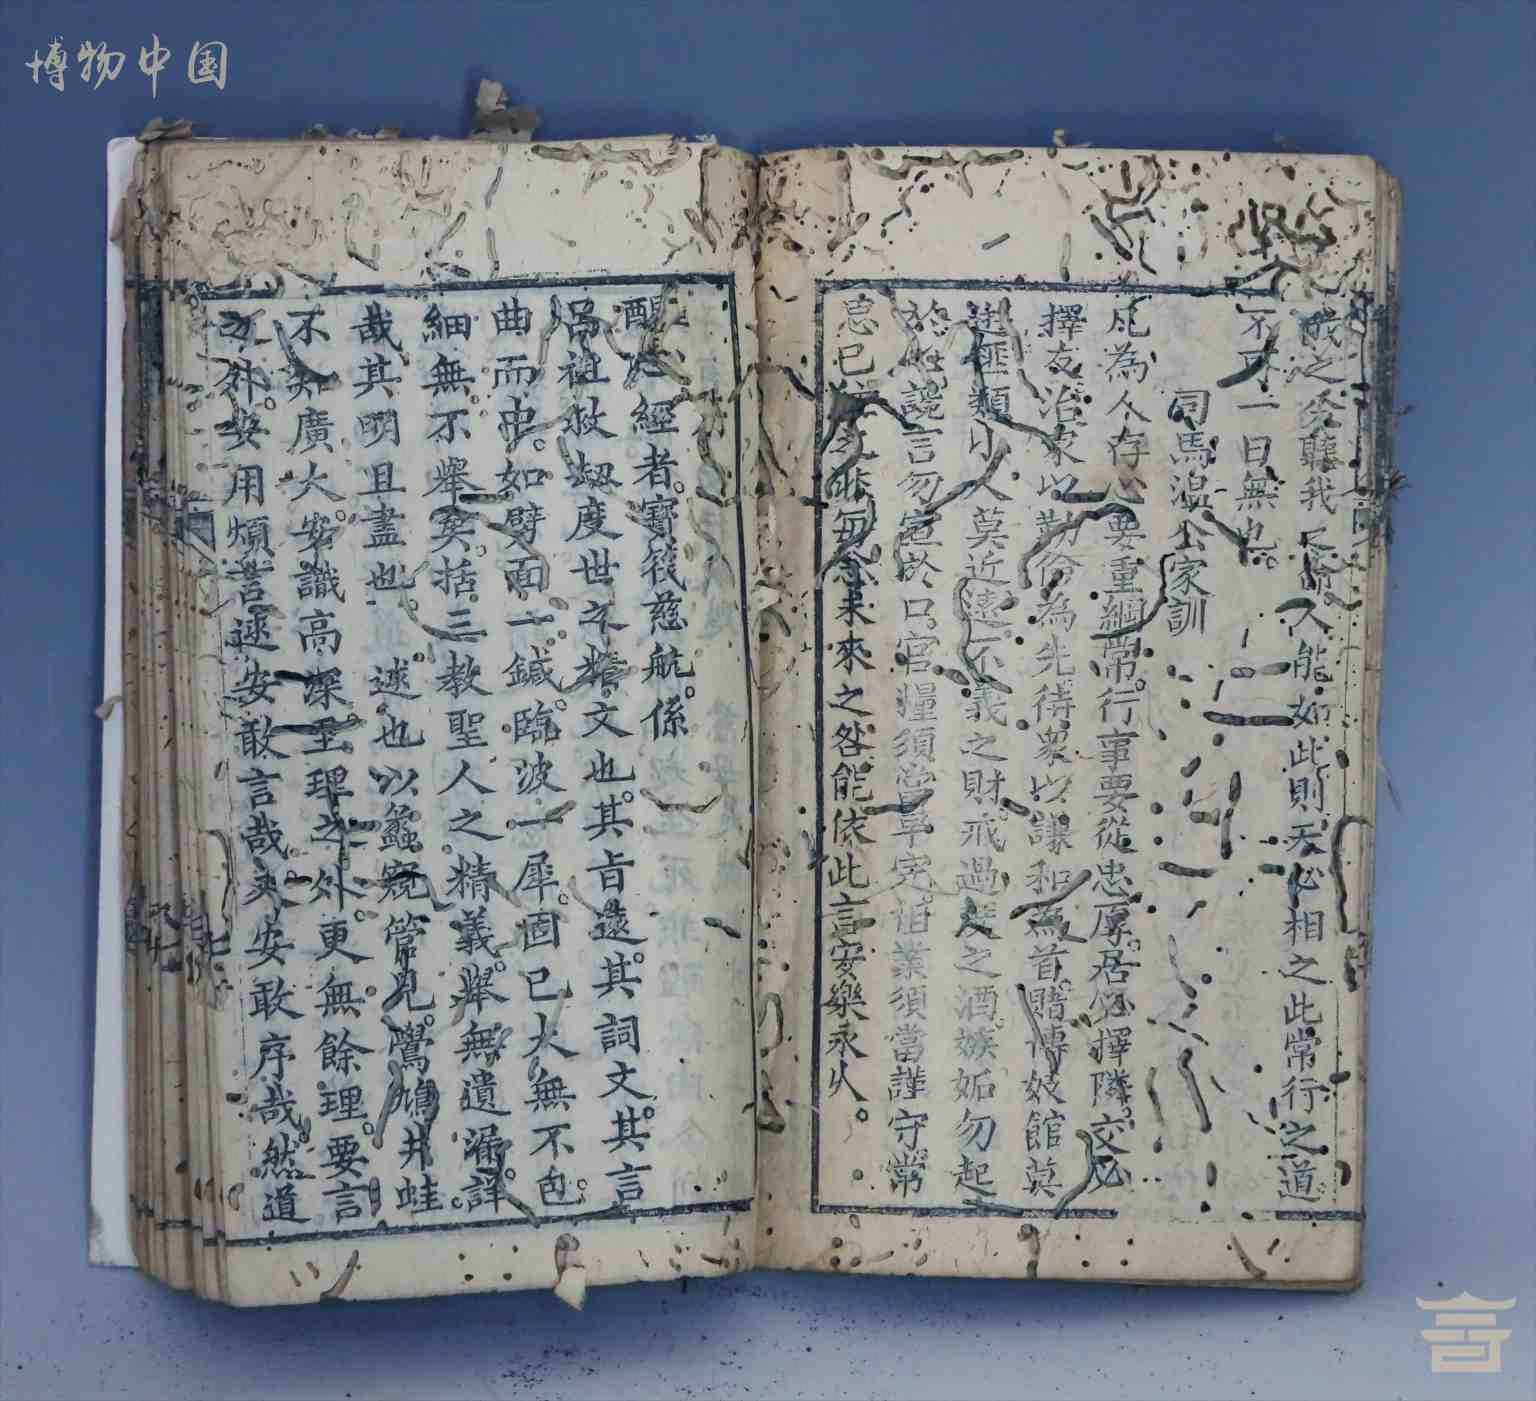 博物中国
之殳聽我 人能如此則天必相之此常行之道
不可一日無也。
司馬溫公家訓
凡為人存心要重綱常。行事要從忠厚。居必擇隣。交必
擇友治家以勤儉為先待衆以謙和為首。賭博妓館莫
遊匪類小人莫近遠不義之財。戒過度之酒。嫉妬勿起
於 謊言勿宣於口。官糧須當早完。祖業須當謹守常
思已往之非每念未來之咎能依此言安樂永久。
醒心經者。寶筏慈航。係
呂祖救刼度世之精文也。其旨遠。其詞文。其言
曲而中。如劈面一鍼。臨波一犀。固已大無不包。
細無不舉矣。括三教聖人之精義。舉無遺漏。詳
哉其明且盡也。述也以蠡窺管見。鷽鳩井蛙
不知廣大。安識高深至理之外。更無餘理。要言
之外。安用煩言。述安敢言哉。夾安敢序哉。然道